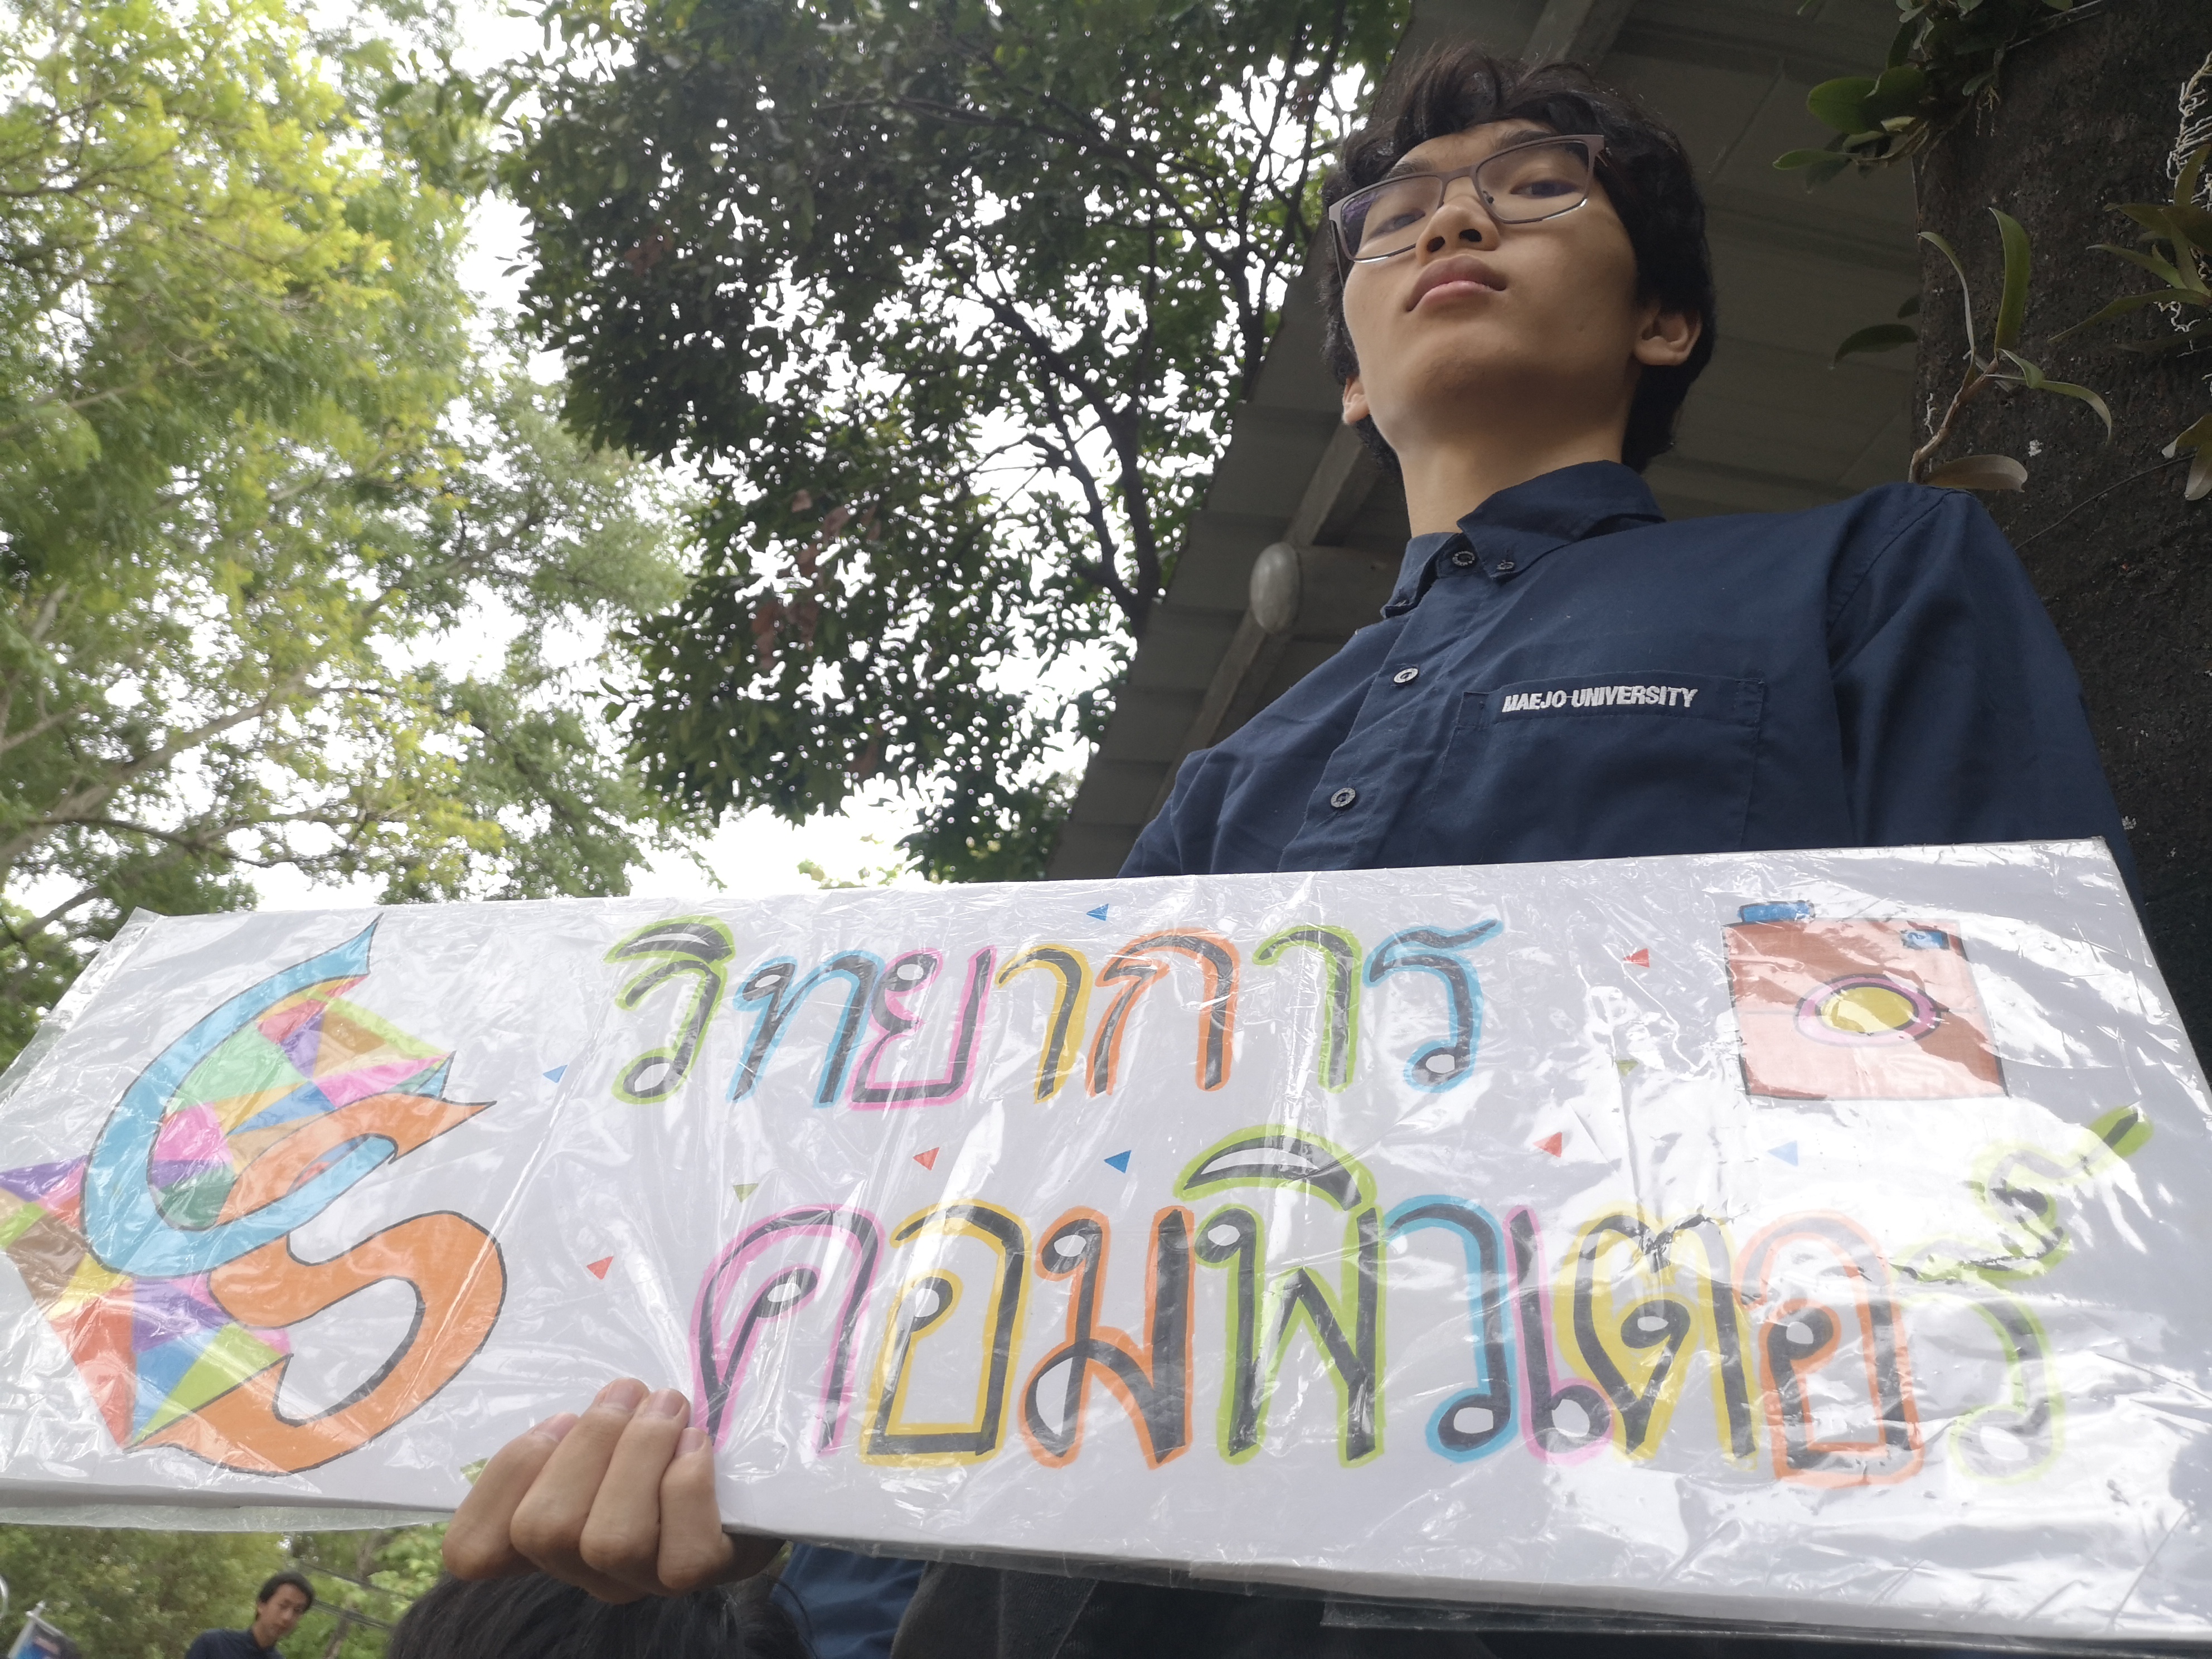 MAEJO UNIVERSITY
CS
วิทยาการ
คอมพิวเตอร์